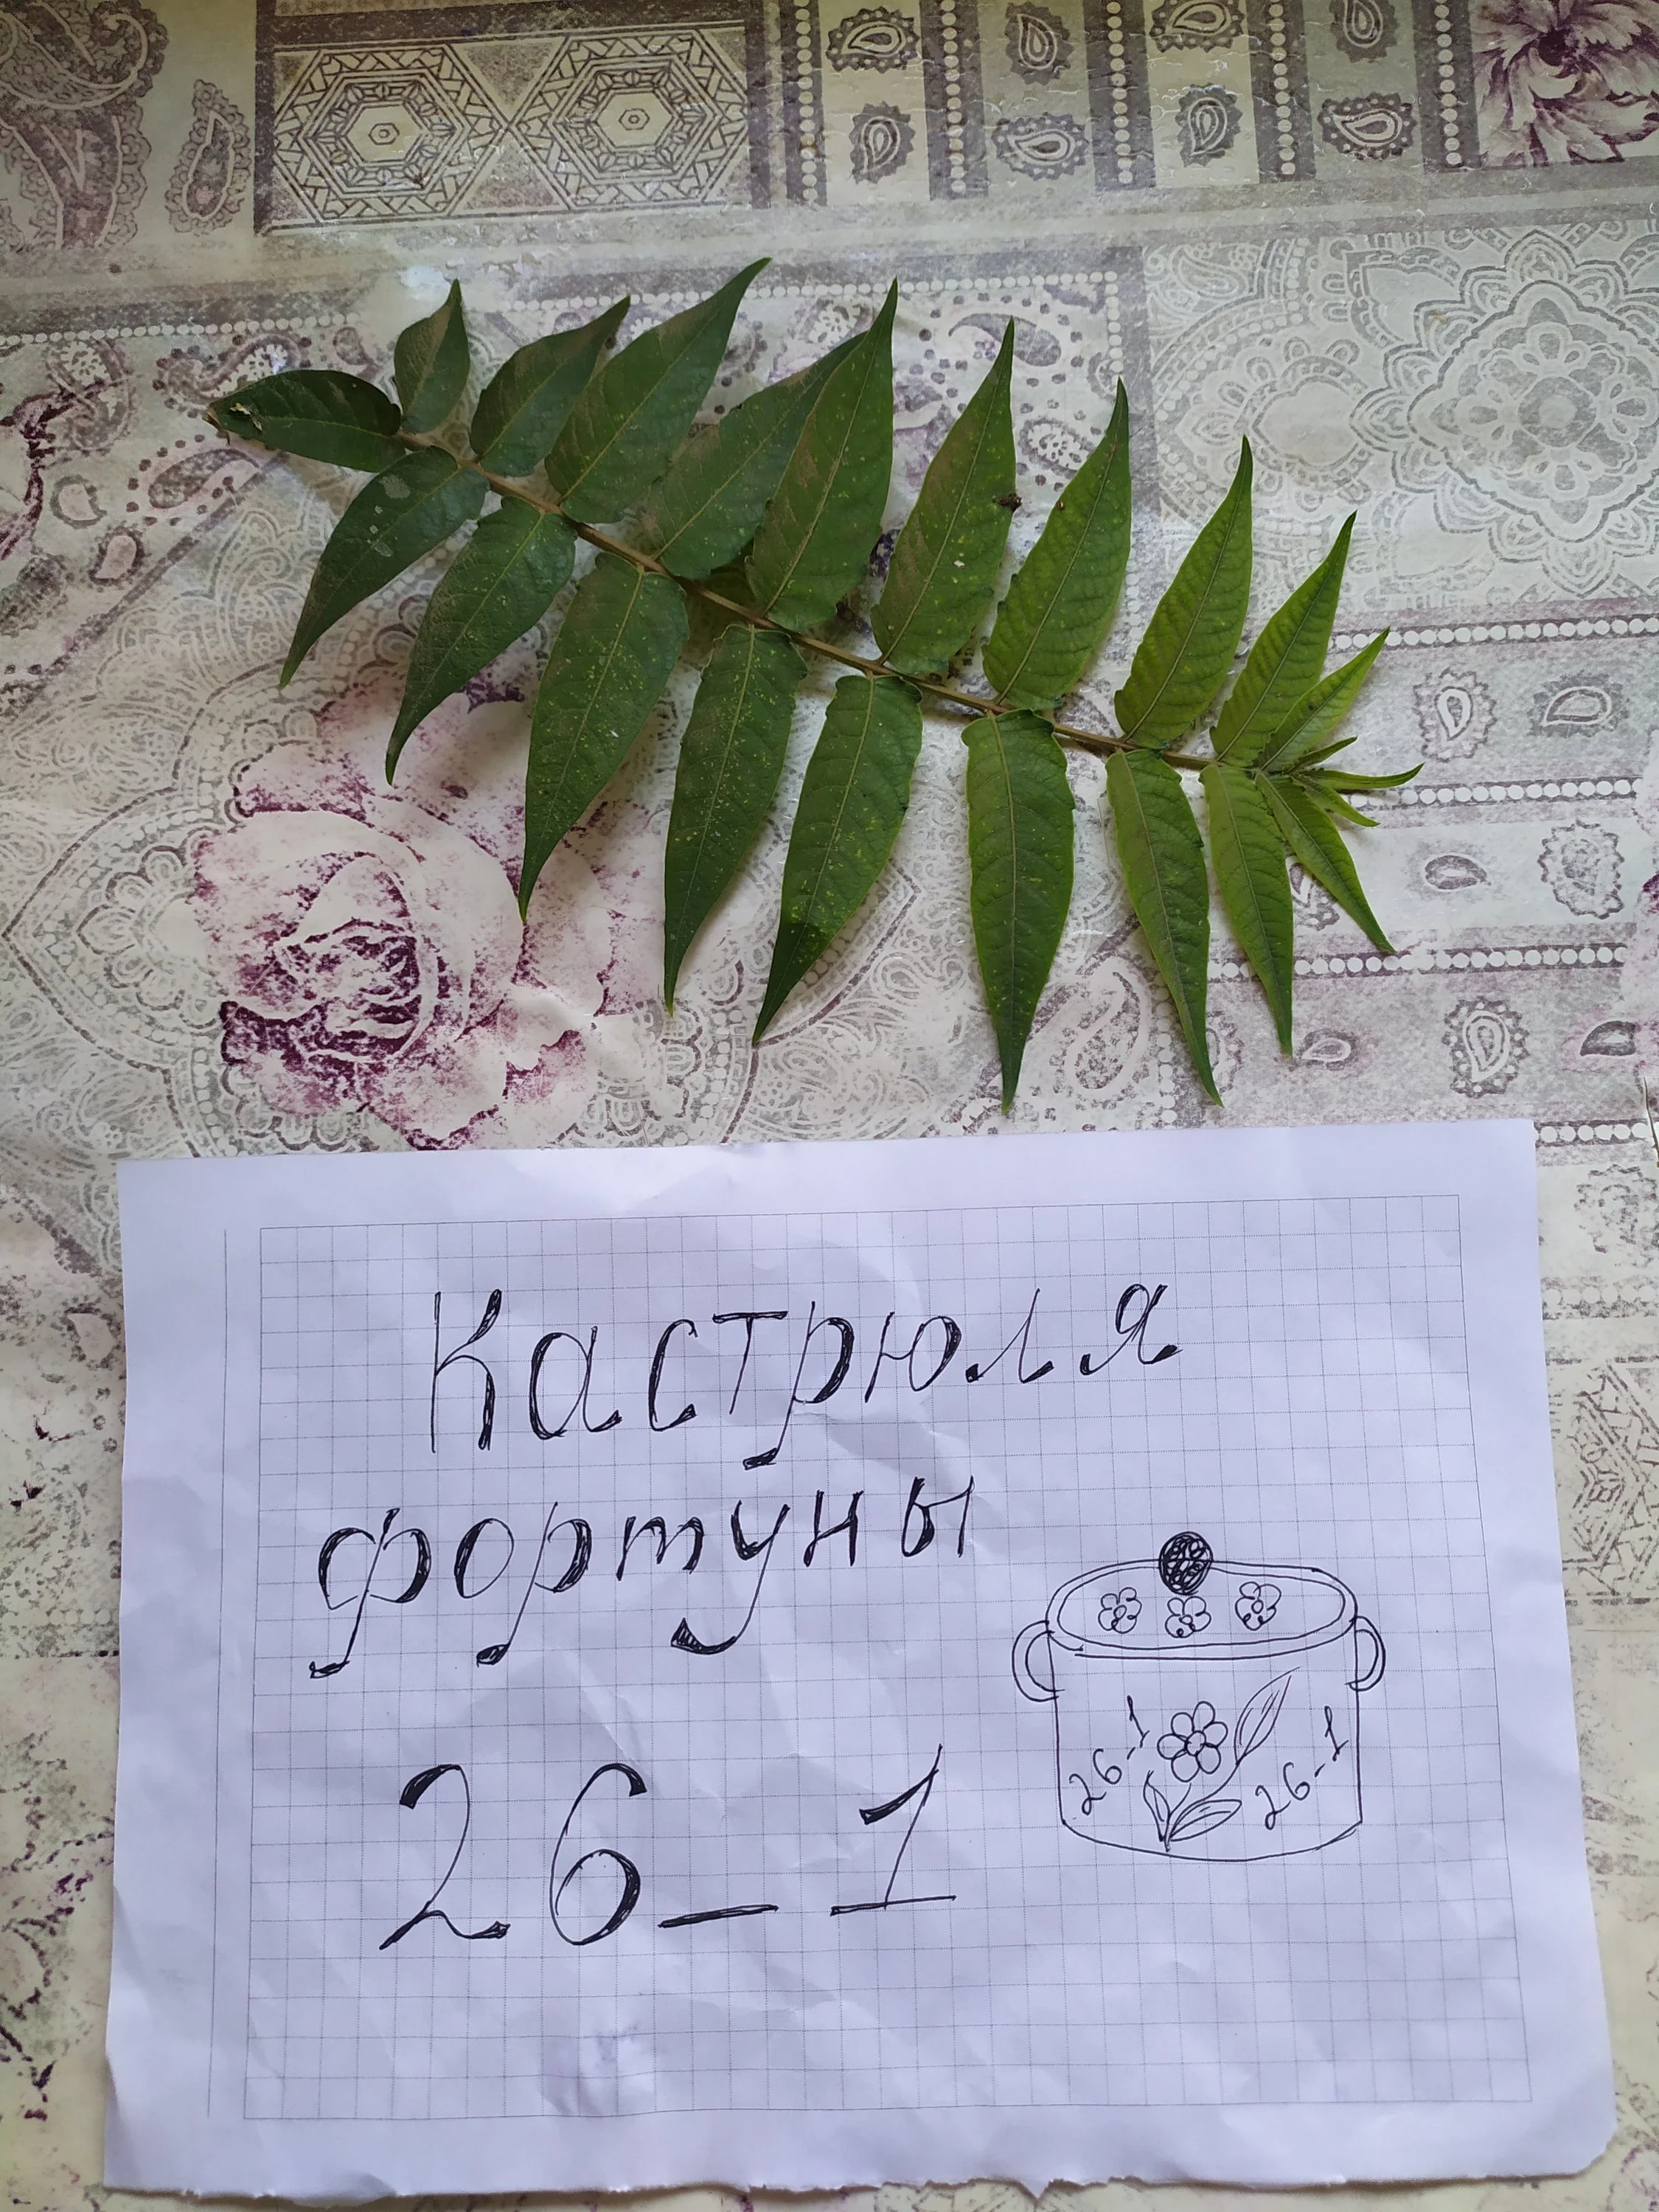 Кастрюля
фортуны
26_1
26-1
26-1